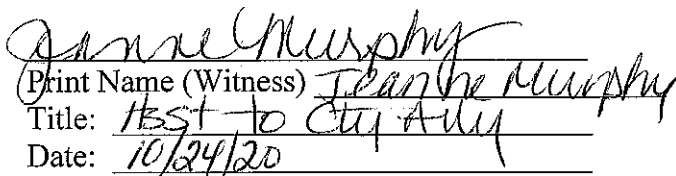 Jeanne Murphy
Print Name (Witness) Jeanne Murphy
Title: Asst to Cty Atty
Date: 10/24/20